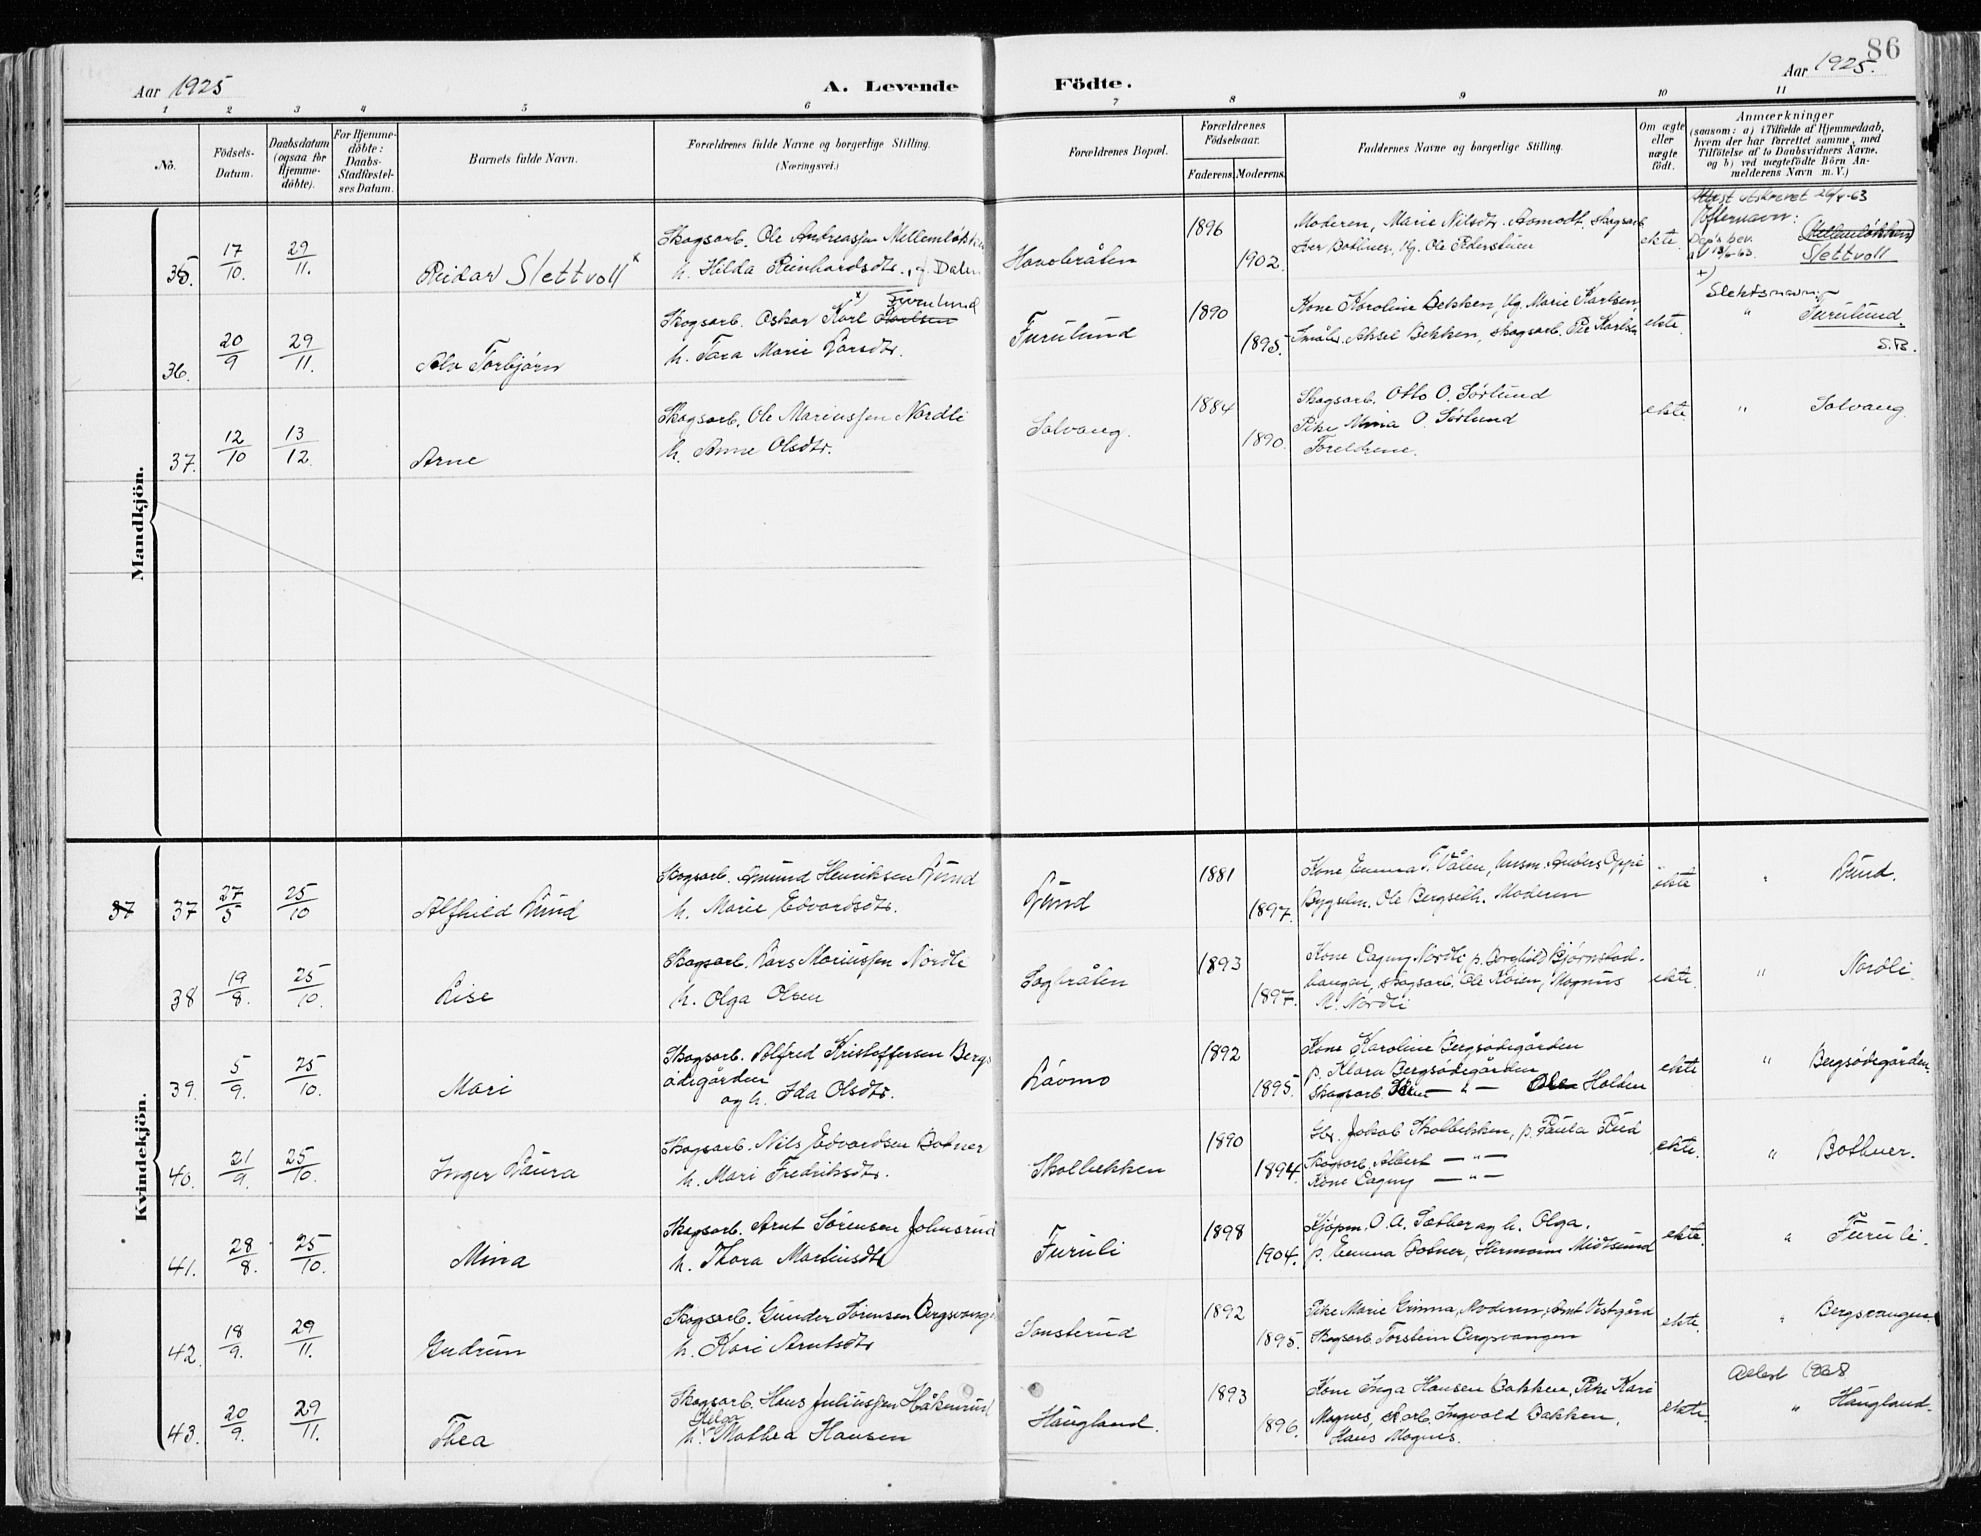 86
Aar 1925
A. Levende
Födte.
Aar 1925.
1 2 3 4 5 6 7 8 9 10 11
No.
Födsels-
Datum.
Daabsdatum
(ogsaa for
Hjemme-
döbte).
For Hjemme-
döbte:
Daabs-
Stadfæstel-
ses Datum.
Barnets fulde Navn.
Forældrenes fulde Navne og borgerlige Stilling.
(Næringsvei.)
Forældrenes Bopæl.
Forældrenes
Födselsaar.
Faderens. Moderens.
Faddernes Navne og borgerlige Stilling.
Om ægte
eller
uægte
födt.
Anmærkninger
(saasom: a) i Tilfælde af Hjemmedaab,
hvem der har forrettet samme, med
Tilföielse af to Daabsvidners Navne,
og b) ved uægtefödte Börn An-
melderens Navn m. V.)
Mandkjön.
35. 17/10. 29/11. Reidar Slettvoll x
Skogsarb. Ole Andreassen Mellemløkken
h. Hilda Reinhardsdtr. f. Dalen
1896
1902.
Moderen, Marie Nilsdtr. Aamodt, skogsarb.
Iver Bothner, Ug. Ole Pederstuen
ekte.
Attest utskrevet 26/8-63
Efternavn:
Dep's bev.
av 13/6-63.
(Mellemløkken)
Slettvoll
36. 20/9 29/11. Alv Torbjørn
Skogsarb. Oskar Karl Karlsen x) Furulund
h. Tara Marie Larsdtr.
Furulund
1890
1895.
Kone Karoline Bekken, Ug. Marie Karlsen
Småbr. Aksel Bekken, skogsarb. Per Karlsen
ekte.
x) Slektsnavn
" Furulund.
S.B.
37. 12/10 13/12. Arne
Skogsarb. Ole Mariussen Nordli
h. Anne Olsdtr.
Solvang.
1884
1890.
Skogsarb. Otto O. Sørlund
Pike Mina O. Sørlund
Foreldrene.
ekte.
" Solvang.
Kvindekjön.
37 37 27/5 25/10 Alfhild Lund
Skogsarb. Amund Henriksen Lund
h. Marie Edvardsdtr.
Lund
1881
1897.
Kone Emma T. Vålen, husm. Anders Oppi
Bygselm. Ole Bergseth. Moderen
ekte
" Lund.
38 19/8. 25/10. Lise
Skogsarb. Lars Mariussen Nordli
h. Olga Olsen
Sagbråten
1893
1897.
Kone Eagny Nordli p. Borghild Bjørnstad-
haugen, skogsarb. Ole Koien, Magnus
M. Nordli
ekte.
" Nordli.
39. 5/9. 25/10. Mari
Skogsarb. Alfred Kristoffersen Bergs
ødegården
og h. Ida Olsdtr.
Råvmo
1892
1895.
Kone Karoline Bergsødegården
p. Klara Bergsødegården
Skogsarb. — " — Ole Holden
ekte
" Bergsødegården.
40. 21/9 25/10. Inger Laura
Skogsarb. Nils Edvardsen Botner
h. Mari Fredriksdtr.
Skolbekken
1890
1894.
Gbr. Jakob Skolbekken, p. Paula Rud
Skogsarb. Albert — " —
Kone Eagny — " —
ekte.
" Bothner.
41. 28/8. 25/10. Mina
Skogsarb. Arnt Sørensen Johnsrud
h. Thora Martinsdtr
Furuli
1898
1904.
Kjøpm. O. A. Sæther og h. Olga.
p. Emma Botner, Hermann Midtsund
ekte.
" Furuli.
42. 18/9. 29/11. Gudrun
Skogsarb. Gunder Sørensen Bergsvangen
h. Kari Arntsdtr
Sønsterud
1892
1895.
Pike Marie Grinna, Moderen, Arnt Vestgård
Skogsarb. Torstein Bergsvangen
ekte.
" Bergsvangen.
43. 20/9. 29/11. Thea
Skogsarb. Hans Juliussen Håkenrud
h. Helga Mathea Hansen
Haugland.
1893
1896.
Kone Inga Hansen Bakken, Pike Kari
Mognes, sk.arb. Ingvald Bakken,
Hans Mognes.
ekte.
Attest 1968
" Haugland.